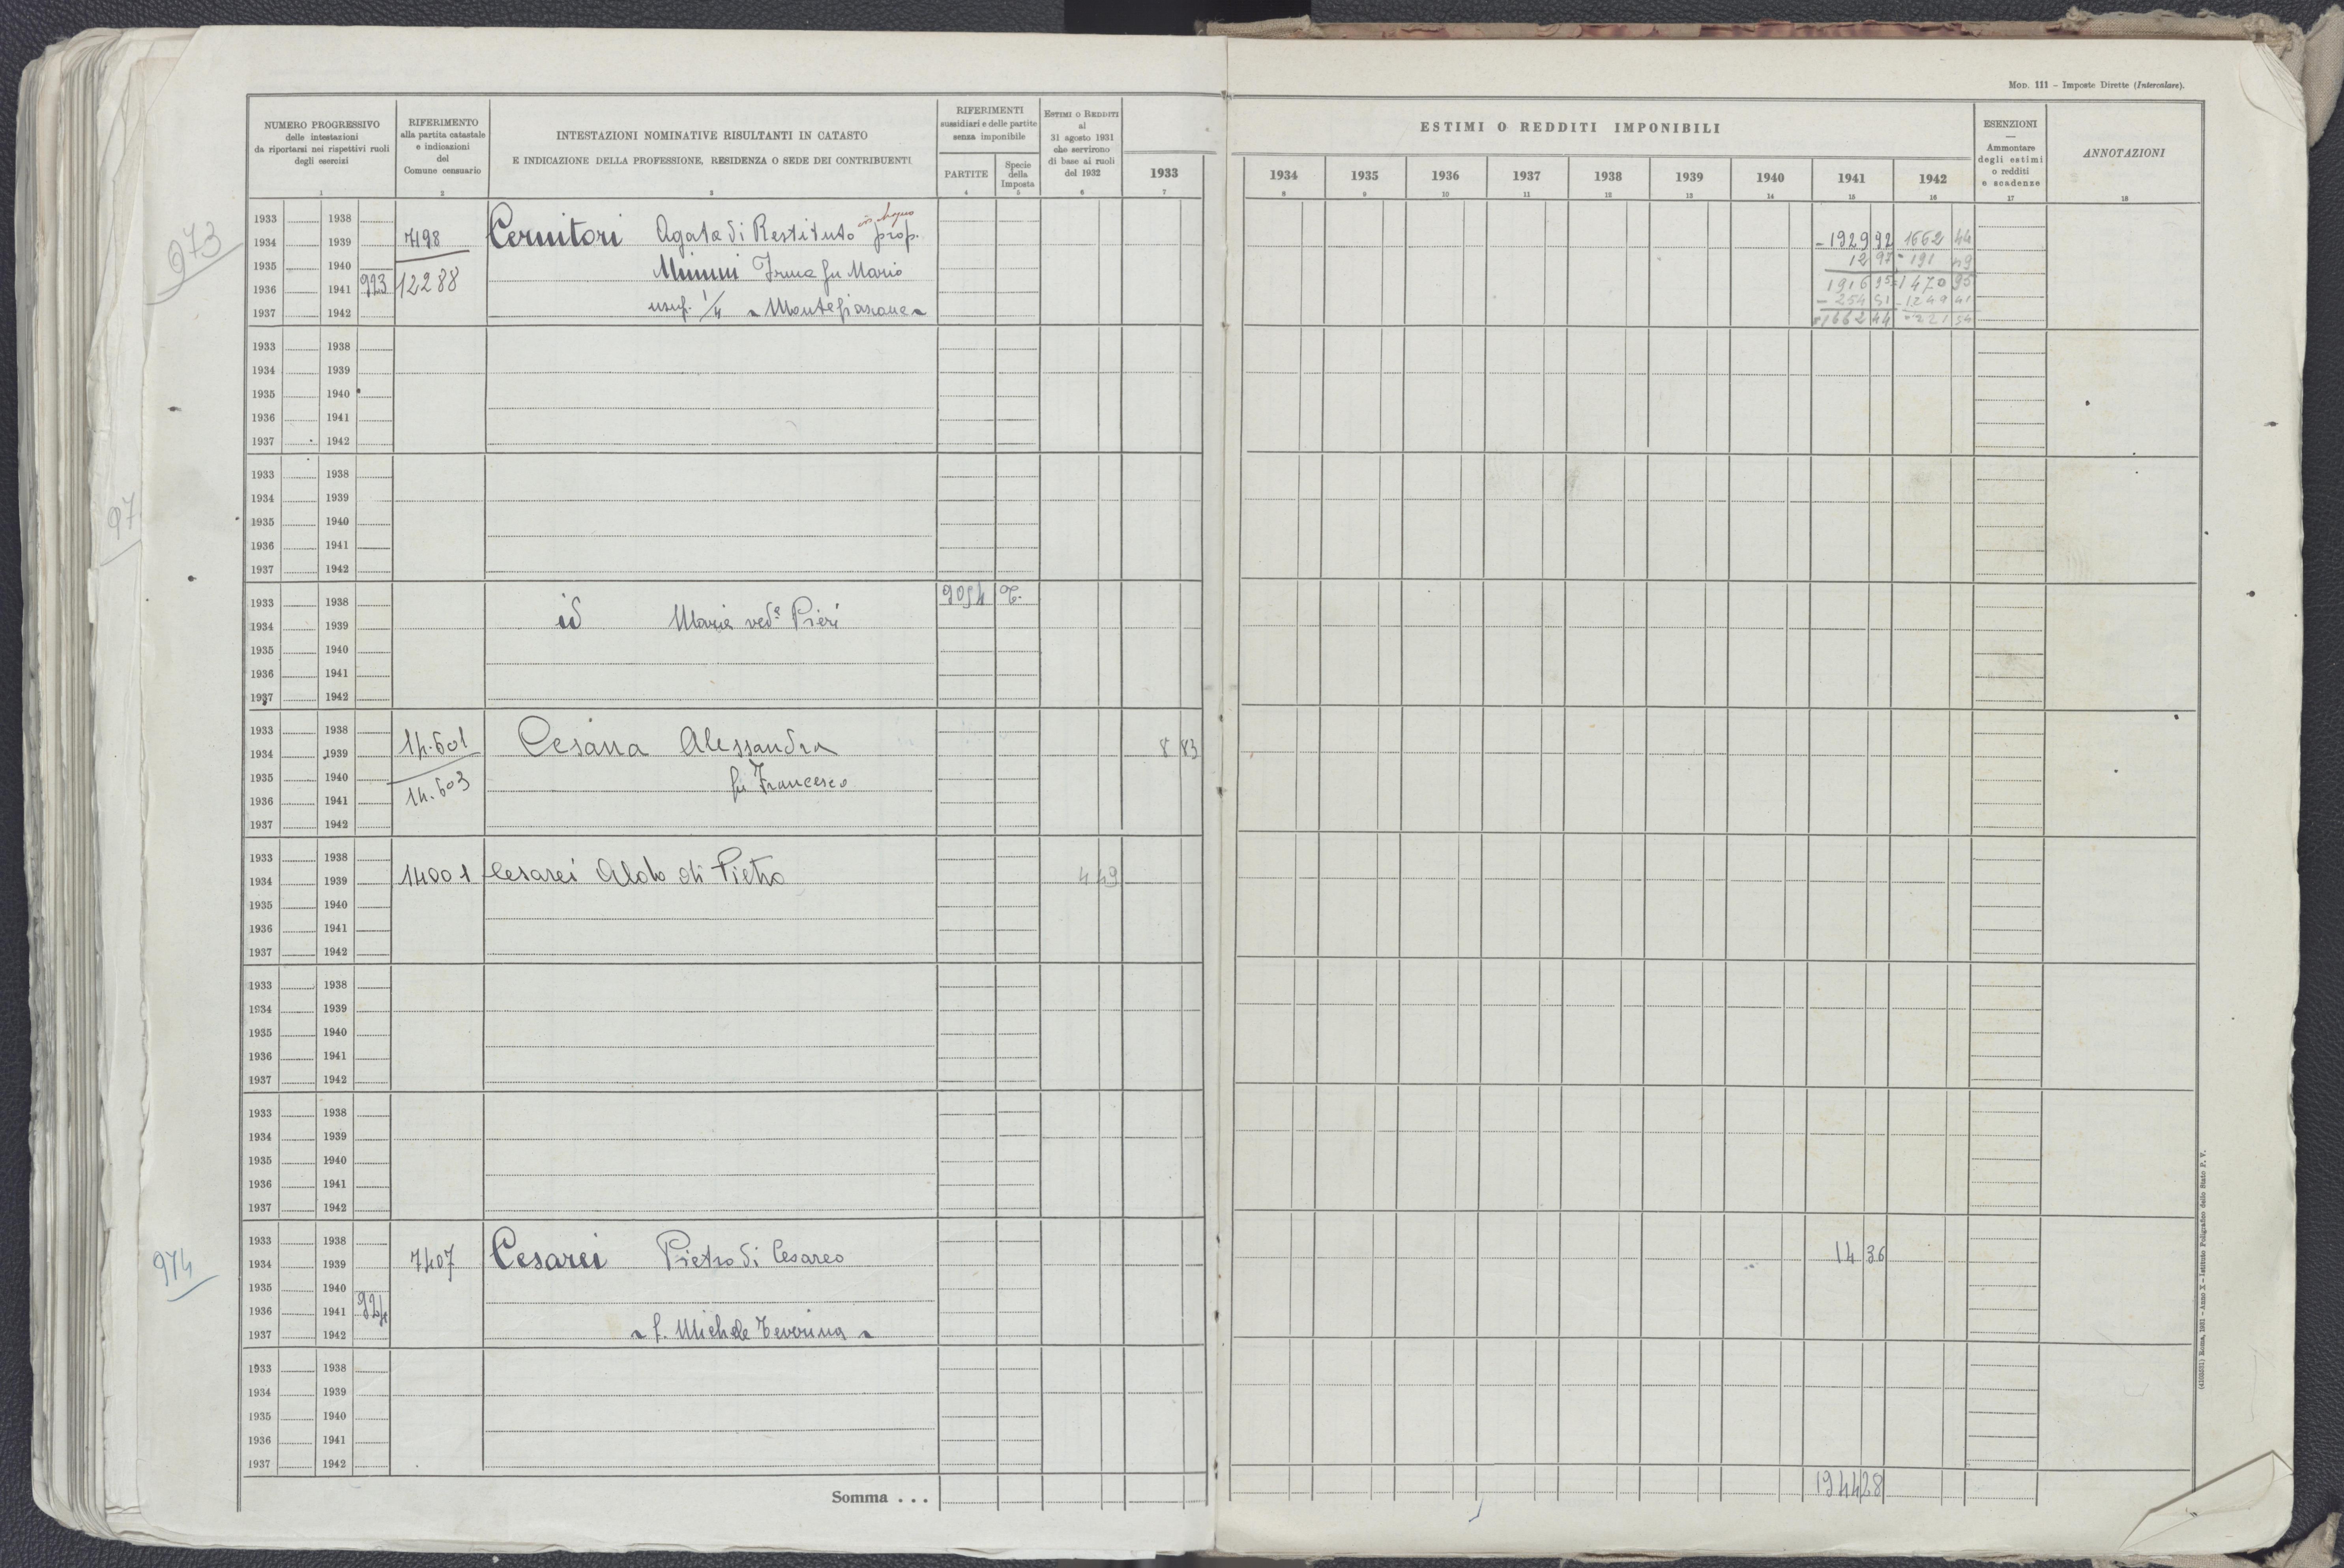 Mod. 111 – Imposte Dirette (Intercalare).
NUMERO PROGRESSIVO
delle intestazioni
da riportarsi nei rispettivi ruoli
degli esercizi
1
RIFERIMENTO
alla partita catastale
e indicazioni
del
Comune censuario
2
INTESTAZIONI NOMINATIVE RISULTANTI IN CATASTO
E INDICAZIONE DELLA PROFESSIONE, RESIDENZA O SEDE DEI CONTRIBUENTI
3
RIFERIMENTI
sussidiari e delle partite
senza imponibile
PARTITE
4
Specie
della
Imposta
5
Estimi o Redditi
al
31 agosto 1931
che servirono
di base ai ruoli
del 1932
6
1933
7
ESTIMI O REDDITI IMPONIBILI
1934 1935 1936 1937 1938 1939 1940 1941 1942
8 9 10 11 12 13 14 15 16
ESENZIONI
—
Ammontare
degli estimi
o redditi
e scadenze
17
ANNOTAZIONI
18
973
1933 1938
1934 1939 7198 Cernitori Agata di Restituto prop. 1929 92 1662 44
1935 1940 Mimmi Irma fu Mario 12 97 191 49
1936 1941 923 12288 1916 95 1470 95
1937 1942 usuf. 1/4 Montefiascone 254 51 1249 41
1662 44 221 54
1933 1938
1934 1939
1935 1940
1936 1941
1937 1942
97
1933 1938
1934 1939
1935 1940
1936 1941
1937 1942
1933 1938 9094 T.
1934 1939 id Maria ved. Pieri
1935 1940
1936 1941
1937 1942
1933 1938
1934 1939 14.601 Cesana Alessandra 8 83
1935 1940 14.603 fu Francesco
1936 1941
1937 1942
1933 1938
1934 1939 14001 Cesarei Aldo di Pietro 4 49
1935 1940
1936 1941
1937 1942
1933 1938
1934 1939
1935 1940
1936 1941
1937 1942
1933 1938
1934 1939
1935 1940
1936 1941
1937 1942
974
1933 1938
1934 1939 7407 Cesarei Pietro di Cesareo 14 36
1935 1940
1936 1941 924
1937 1942 S. Michele Teverina
1933 1938
1934 1939
1935 1940
1936 1941
1937 1942
Somma . . . 1944 28
(4103531) Roma, 1931 - Anno X - Istituto Poligrafico dello Stato P. V.